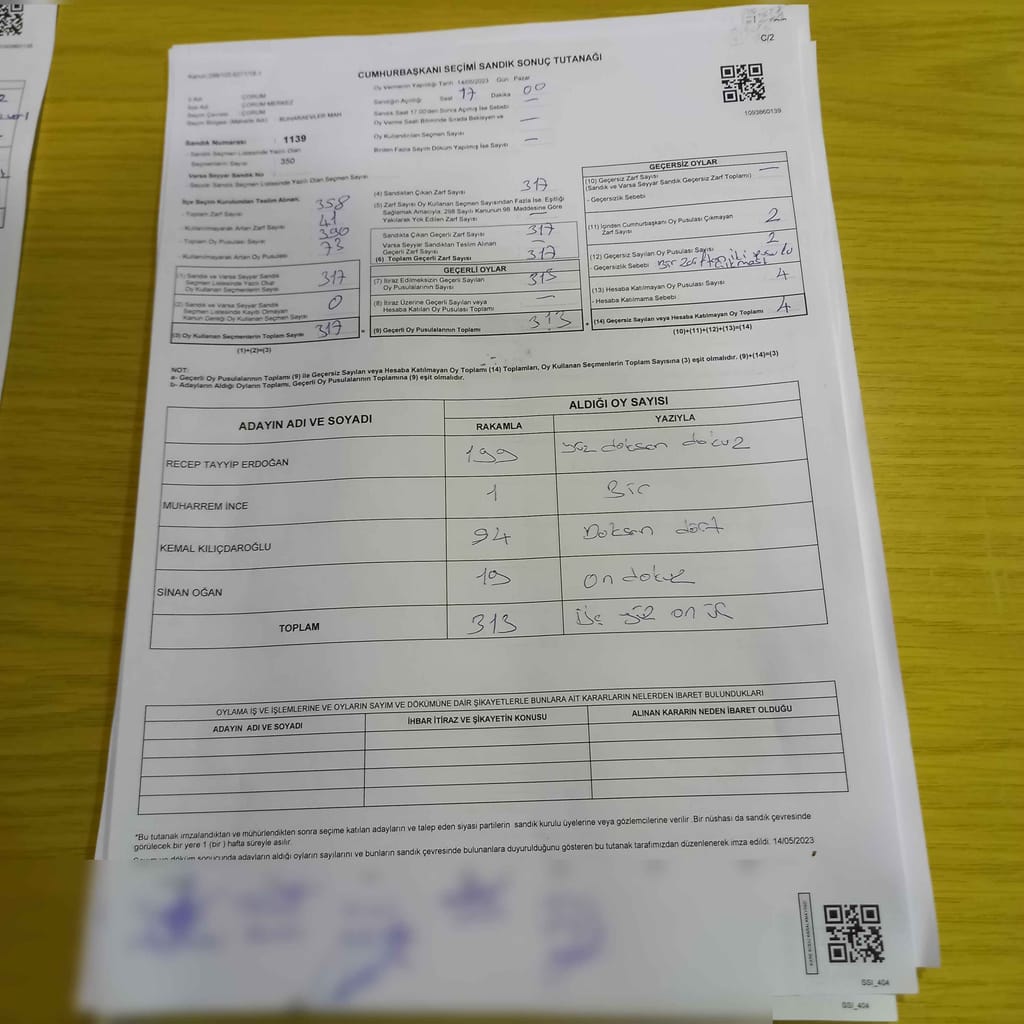 C/2
CUMHURBAŞKANI SEÇİMİ SANDIK SONUÇ TUTANAĞI
1093860139
İl Adı : ÇORUM
İlçe Adı : ÇORUM MERKEZ
Seçim Çevresi : ÇORUM
Seçim Bölgesi (Mahalle Adı) : BUHARAEVLER MAH
Sandık Numarası : 1139
- Sandık Seçmen Listesinde Yazılı Olan
Seçmenlerin Sayısı : 350
Varsa Seyyar Sandık No
- Seyyar Sandık Seçmen Listesinde Yazılı Olan Seçmen Sayısı
Oy Vermenin Yapıldığı Tarih 14/05/2023 Gün Pazar
Sandığın Açıldığı Saat 17 Dakika 00
Sandık Saat 17.00'den Sonra Açılmış İse Sebebi —
Oy Verme Saati Bitiminde Sırada Bekleyen ve —
Oy Kullandırılan Seçmen Sayısı
Birden Fazla Sayım Döküm Yapılmış İse Sayısı —
İlçe Seçim Kurulundan Teslim Alınan;
- Toplam Zarf Sayısı 358
- Kullanılmayarak Artan Zarf Sayısı 41
- Toplam Oy Pusulası Sayısı 390
- Kullanılmayarak Artan Oy Pusulası 73
(1) Sandık ve Varsa Seyyar Sandık
Seçmen Listesinde Yazılı Olup
Oy Kullanan Seçmenlerin Sayısı 317
(2) Sandık ve Varsa Seyyar Sandık
Seçmen Listesinde Kaydı Olmayan
Kanun Gereği Oy Kullanan Seçmen Sayısı 0
(3) Oy Kullanan Seçmenlerin Toplam Sayısı 317
(1)+(2)=(3)
(4) Sandıktan Çıkan Zarf Sayısı 317
(5) Zarf Sayısı Oy Kullanan Seçmen Sayısından Fazla İse, Eşitliği
Sağlamak Amacıyla; 298 Sayılı Kanunun 98. Maddesine Göre
Yakılarak Yok Edilen Zarf Sayısı —
Sandıkta Çıkan Geçerli Zarf Sayısı 317
Varsa Seyyar Sandıktan Teslim Alınan
Geçerli Zarf Sayısı —
(6) Toplam Geçerli Zarf Sayısı 317
GEÇERLİ OYLAR
(7) İtiraz Edilmeksizin Geçerli Sayılan
Oy Pusulalarının Sayısı 313
(8) İtiraz Üzerine Geçerli Sayılan veya
Hesaba Katılan Oy Pusulası Toplamı —
(9) Geçerli Oy Pusulalarının Toplamı 313
GEÇERSİZ OYLAR
(10) Geçersiz Zarf Sayısı —
(Sandık ve Varsa Seyyar Sandık Geçersiz Zarf Toplamı)
- Geçersizlik Sebebi
(11) İçinden Cumhurbaşkanı Oy Pusulası Çıkmayan
Zarf Sayısı 2
(12) Geçersiz Oy Pusulası Sayısı 2
- Geçersizlik Sebebi Bir zarftan iki pusula çıkması
(13) Hesaba Katılmayan Oy Pusulası Sayısı 4
- Hesaba Katılmama Sebebi
(14) Geçersiz Sayılan veya Hesaba Katılmayan Oy Toplamı 4
(10)+(11)+(12)+(13)=(14)
NOT:
a- Geçerli Oy Pusulasının Toplamı (9) ile Geçersiz Sayılan veya Hesaba Katılmayan Oy Toplamı (14) Toplamları, Oy Kullanan Seçmenlerin Toplam Sayısına (3) eşit olmalıdır. (9)+(14)=(3)
b- Adayların Aldığı Oyların Toplamı, Geçerli Oy Pusulalarının Toplamına (9) eşit olmalıdır.
ADAYIN ADI VE SOYADI ALDIĞI OY SAYISI
RAKAMLA YAZIYLA
RECEP TAYYİP ERDOĞAN 199 yüz doksan dokuz
MUHARREM İNCE 1 Bir
KEMAL KILIÇDAROĞLU 94 Doksan dört
SİNAN OĞAN 19 on dokuz
TOPLAM 313 üç yüz on üç
OYLAMA İŞ VE İŞLEMLERİNE VE OYLARIN SAYIM VE DÖKÜMÜNE DAİR ŞİKAYETLERLE BUNLARA AİT KARARLARIN NELERDEN İBARET BULUNDUKLARI
ADAYIN ADI VE SOYADI İHBAR İTİRAZ VE ŞİKAYETİN KONUSU ALINAN KARARIN NEDEN İBARET OLDUĞU
*Bu tutanak imzalandıktan ve mühürlendikten sonra seçime katılan adayların ve talep eden siyasi partilerin sandık kurulu üyelerine veya gözlemcilerine verilir .Bir nüshası da sandık çevresinde
görülecek bir yere 1 (bir ) hafta süreyle asılır.
Sayım ve döküm sonucunda adayların aldığı oyların sayılarını ve bunların sandık çevresinde bulunanlara duyurulduğunu gösteren bu tutanak tarafımızdan düzenlenerek imza edildi. 14/05/2023
SSI_404
SSI_404